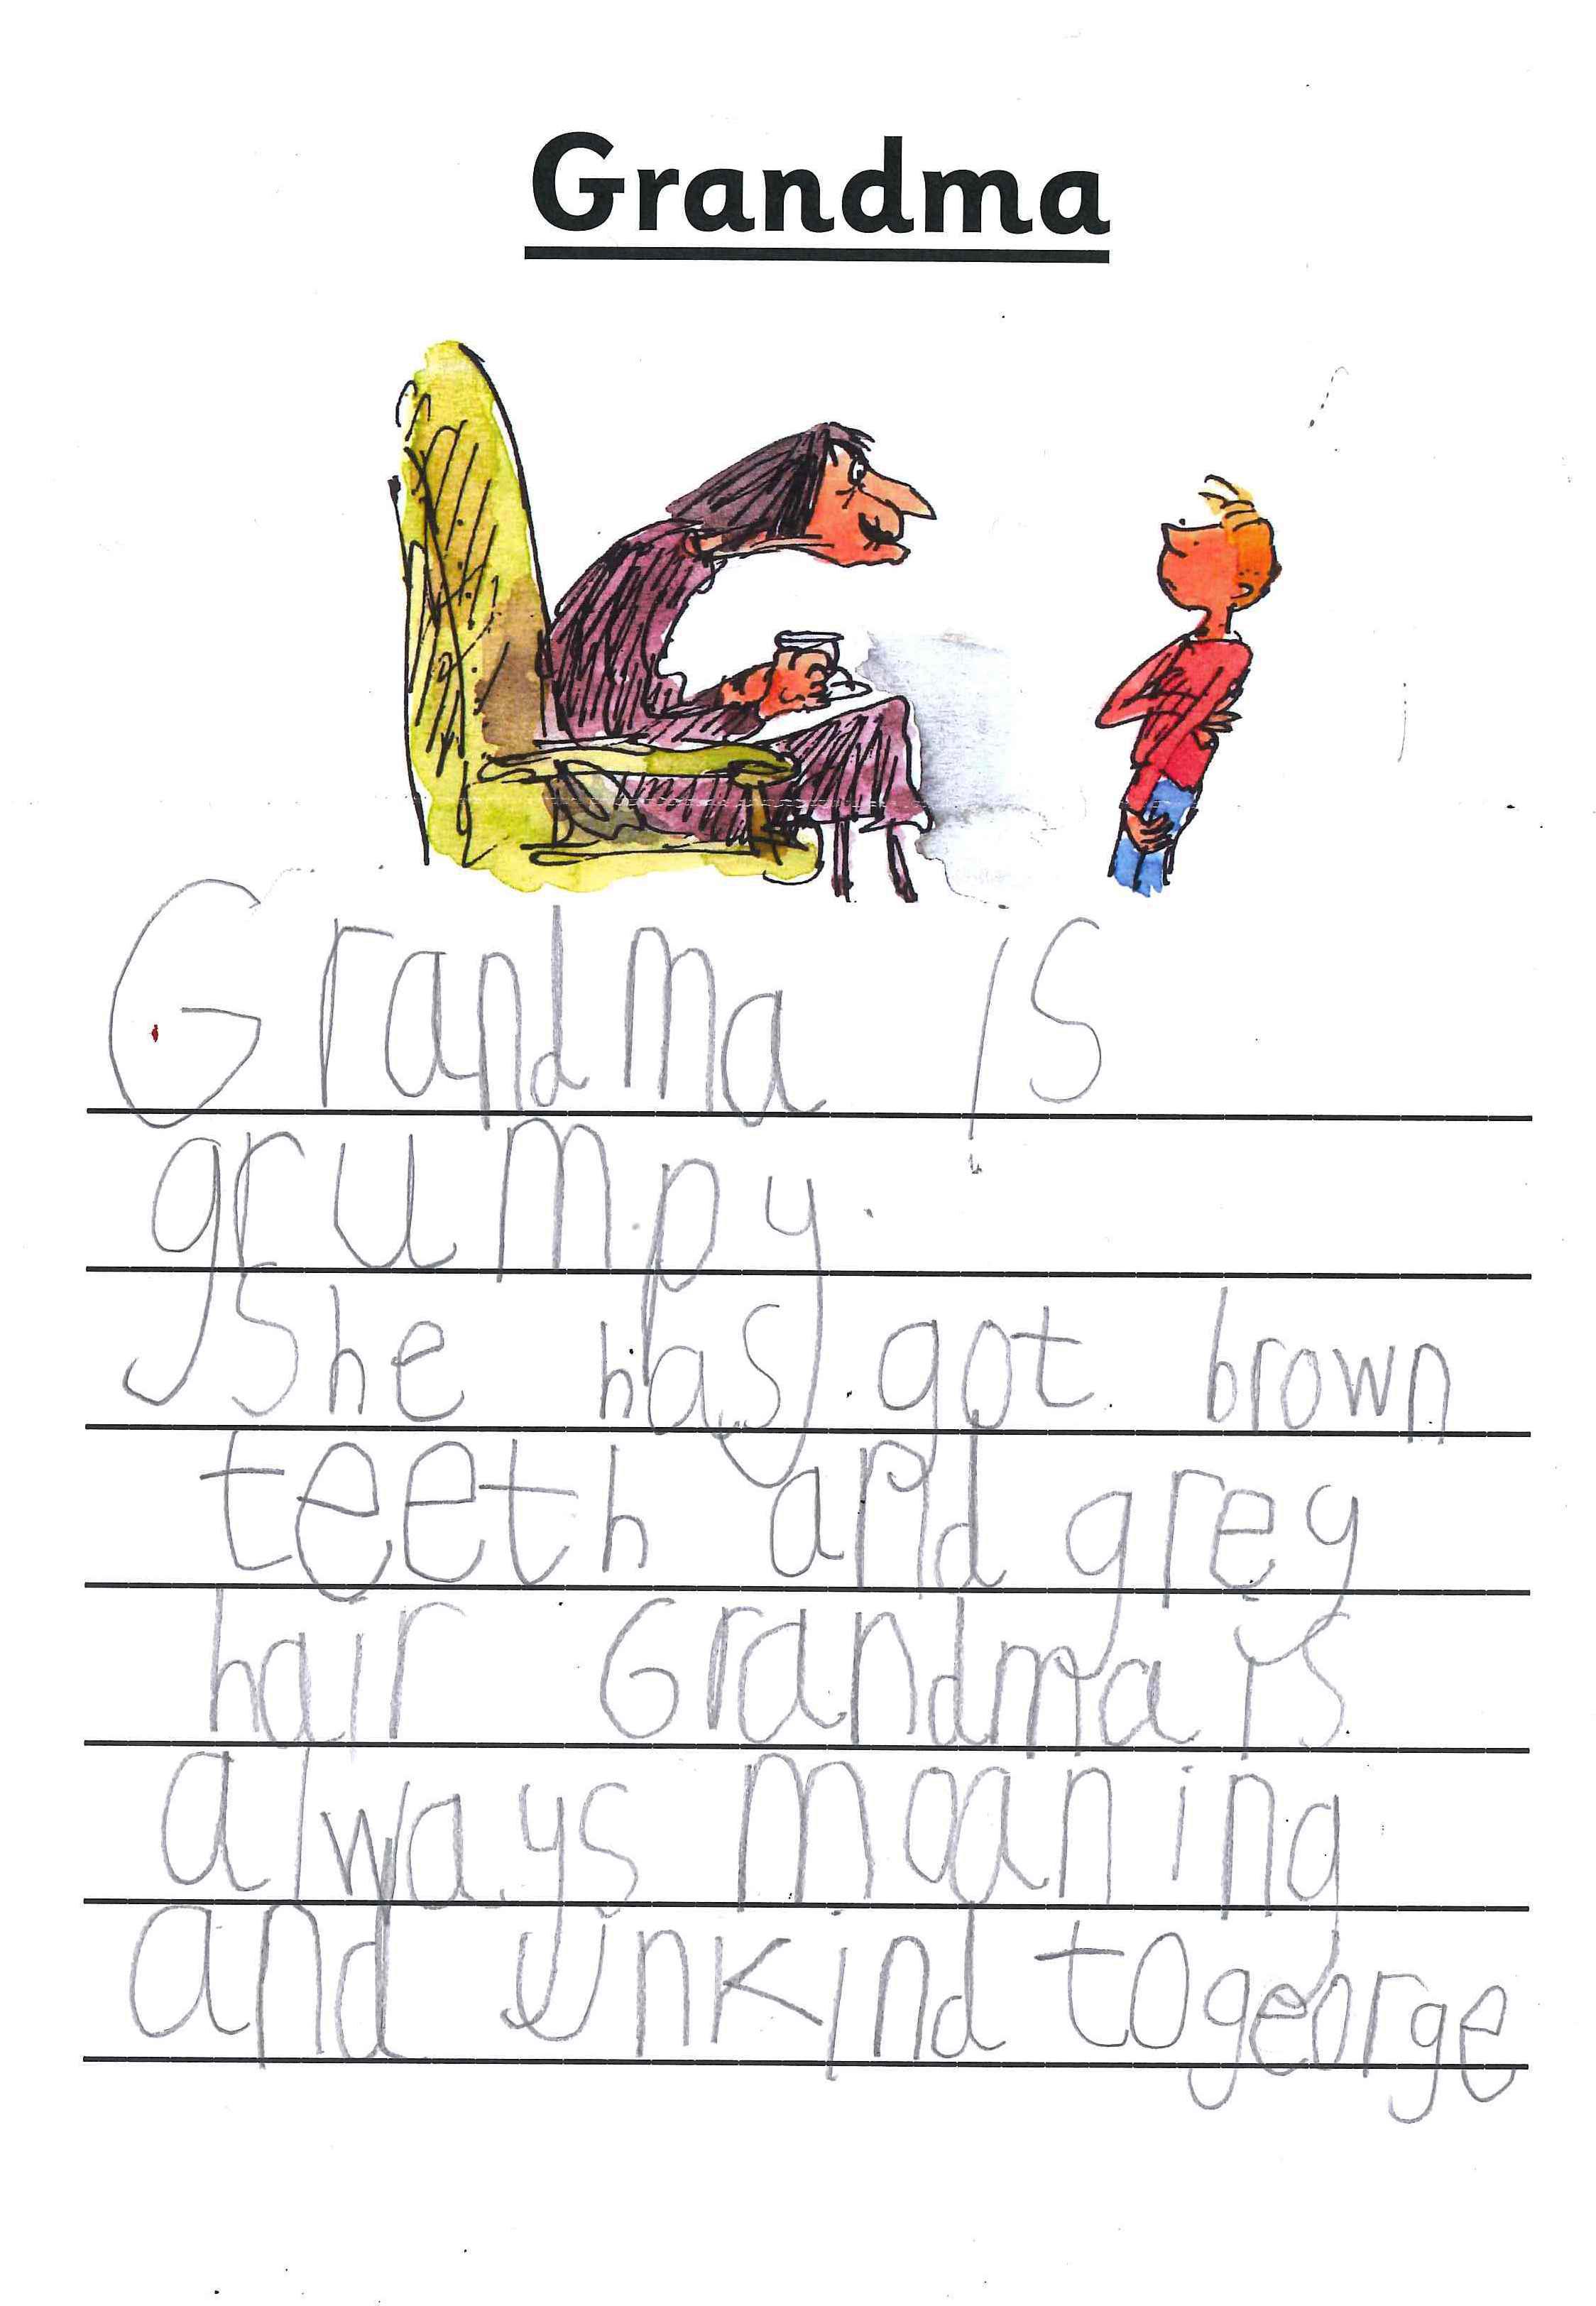 Grandma
Grandma is
grumpy.
She has got brown
teeth and grey
hair Grandma is
always moaning
and unkind to george